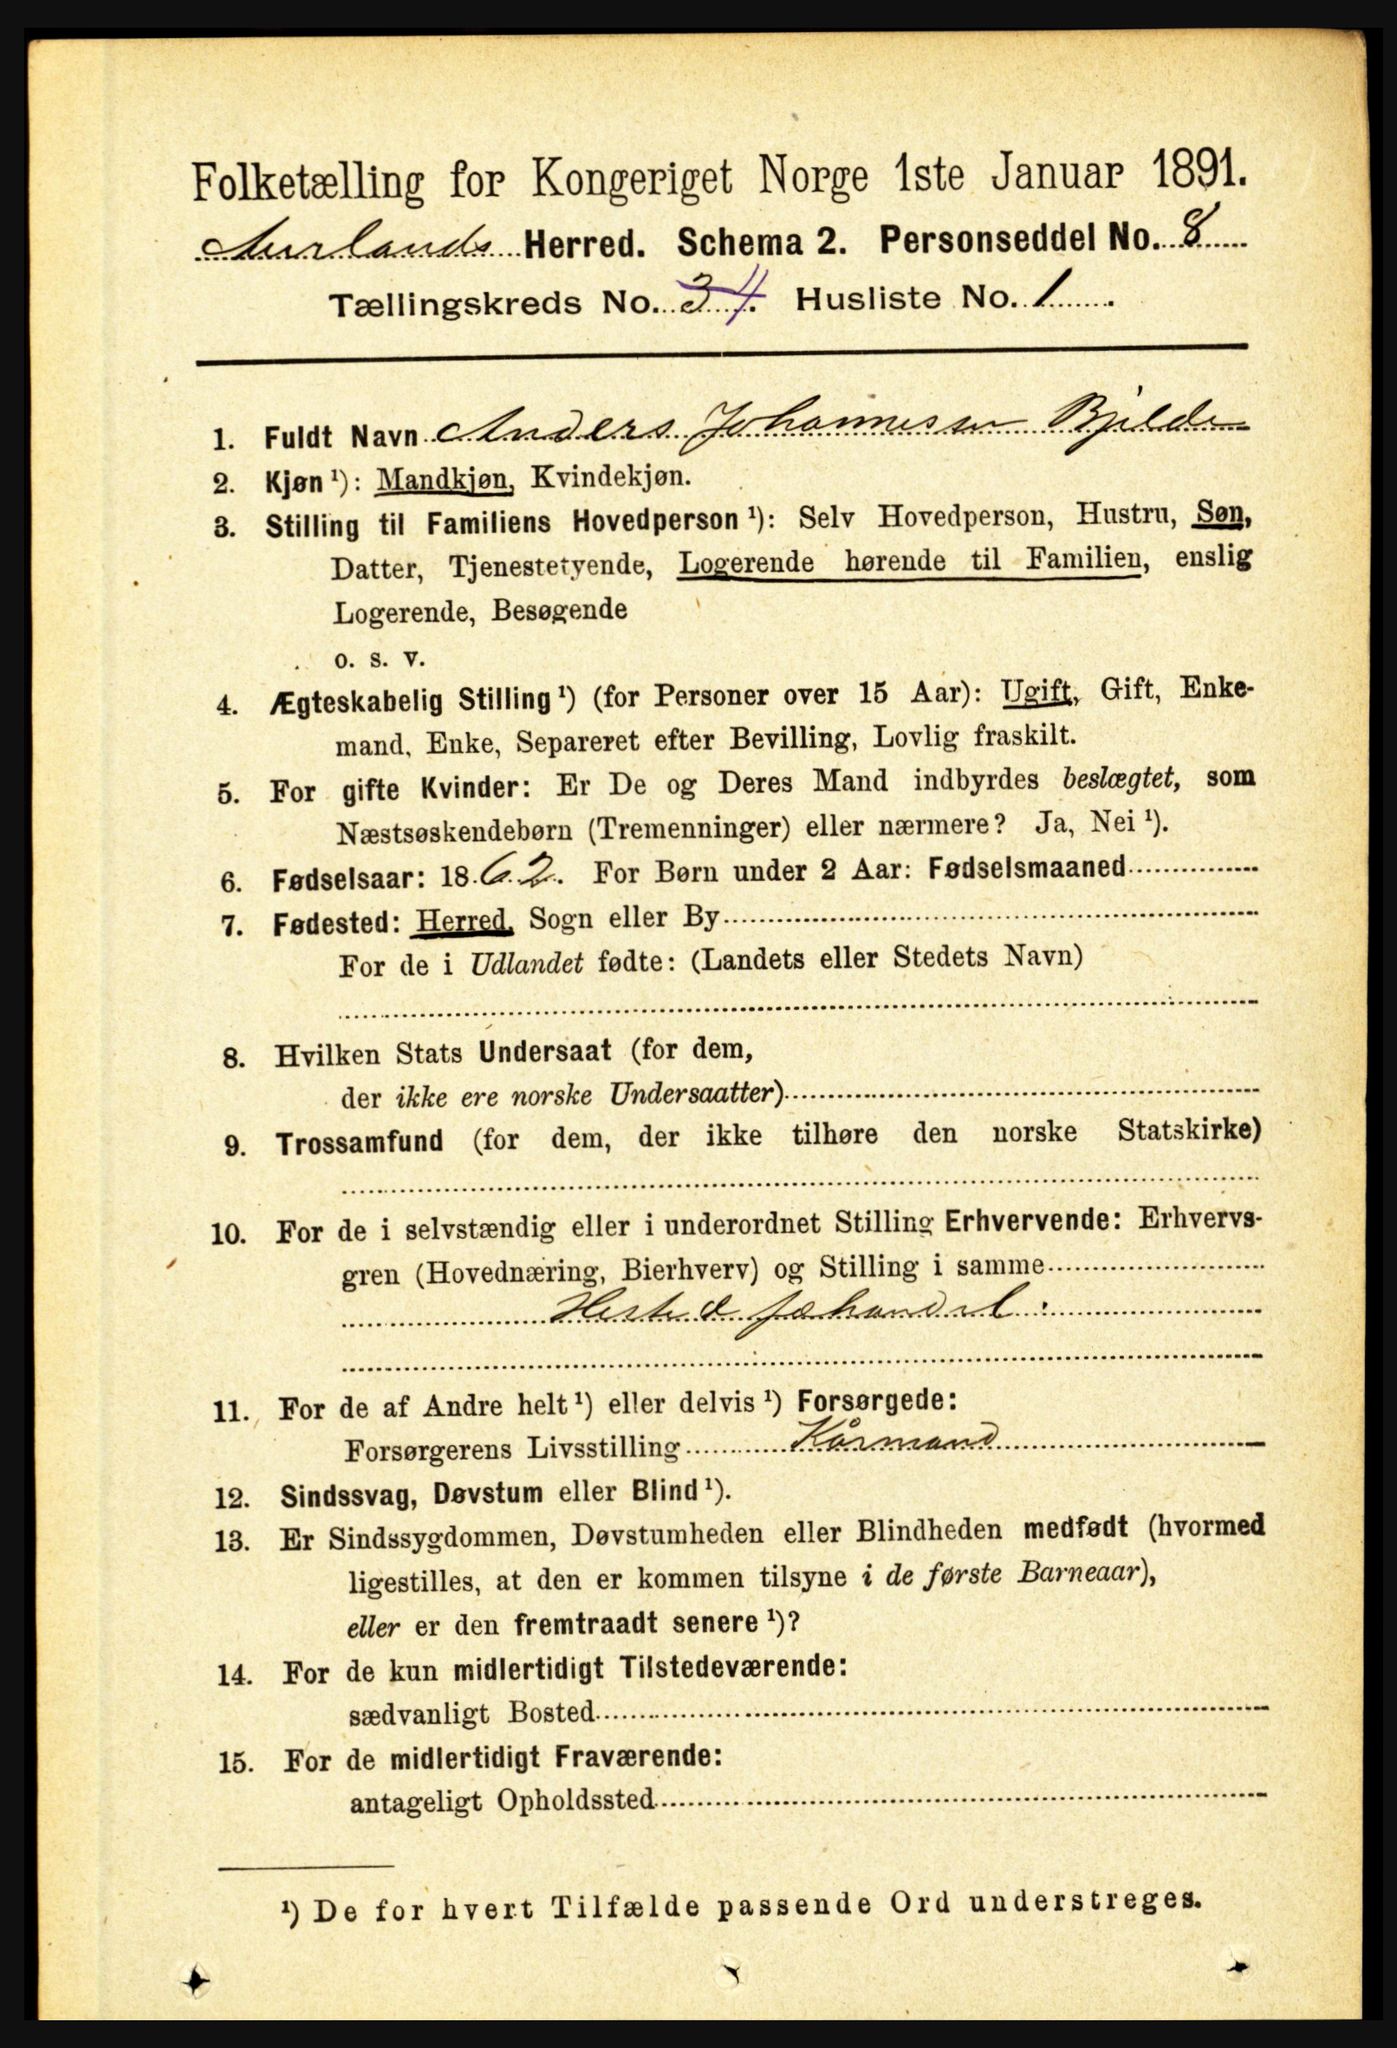 Folketælling for Kongeriget Norge 1ste Januar 1891.
Aurlands Herred. Schema 2. Personseddel No. 8
Tællingskreds No. 3 4. Husliste No. 1.
1. Fuldt Navn Anders Johannessen Bjelde
2. Kjøn ¹): Mandkjøn, Kvindekjøn.
3. Stilling til Familiens Hovedperson ¹): Selv Hovedperson, Hustru, Søn,
Datter, Tjenestetyende, Logerende hørende til Familien, enslig
Logerende, Besøgende
o. s. v.
4. Ægteskabelig Stilling ¹) (for Personer over 15 Aar): Ugift, Gift, Enke-
mand, Enke, Separeret efter Bevilling, Lovlig fraskilt.
5. For gifte Kvinder: Er De og Deres Mand indbyrdes beslægtet, som
Næstsøskendebørn (Tremenninger) eller nærmere? Ja, Nei ¹).
6. Fødselsaar: 1862. For Børn under 2 Aar: Fødselsmaaned
7. Fødested: Herred, Sogn eller By
For de i Udlandet fødte: (Landets eller Stedets Navn)
8. Hvilken Stats Undersaat (for dem,
der ikke ere norske Undersaatter)
9. Trossamfund (for dem, der ikke tilhøre den norske Statskirke)
10. For de i selvstændig eller i underordnet Stilling Erhvervende: Erhvervs-
gren (Hovednæring, Bierhverv) og Stilling i samme
Hest & fæhandel
11. For de af Andre helt ¹) eller delvis ¹) Forsørgede:
Forsørgerens Livsstilling Kårmand
12. Sindssvag, Døvstum eller Blind ¹).
13. Er Sindssygdommen, Døvstumheden eller Blindheden medfødt (hvormed
ligestilles, at den er kommen tilsyne i de første Barneaar),
eller er den fremtraadt senere ¹)?
14. For de kun midlertidigt Tilstedeværende:
sædvanligt Bosted
15. For de midlertidigt Fraværende:
antageligt Opholdssted
¹) De for hvert Tilfælde passende Ord understreges.